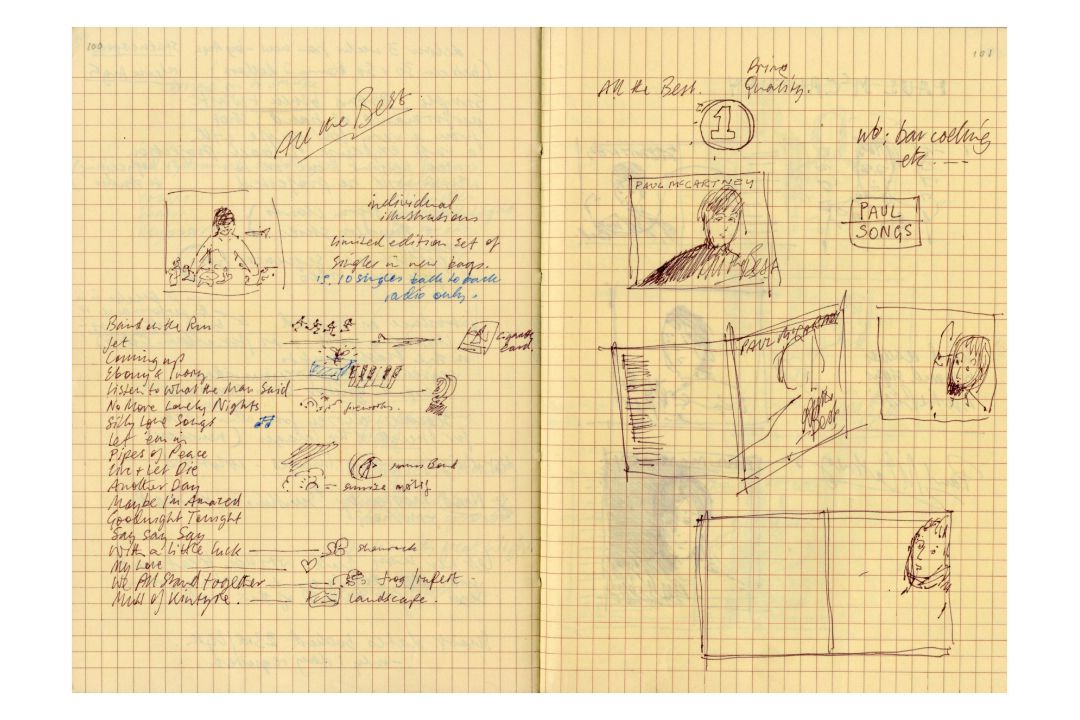 100
All the Best.
individual
illustrations
Limited edition set of
Singles in new bags.
15. 10 singles back to back
radio only.
Band on the Run
Jet
Coming up
Ebony & Ivory
Listen to what the Man Said
No More Lonely Nights
Silly Love Songs
Let 'em in
Pipes of Peace
Live + Let Die
Another Day
Maybe I'm Amazed
Goodnight Tonight
Say Say Say
With a Little Luck
My Love
We All Stand Together
Mull of Kintyre.
Cigarette
Card.
fireworks.
James Bond
sunrise motif
shamrock
frog / rupert
landscape.
101
All the Best.
Bring
Quality.
1
nb: bar coding
etc. ----
PAUL McCARTNEY
All the Best
PAUL
SONGS
PAUL McCARTNEY
Best